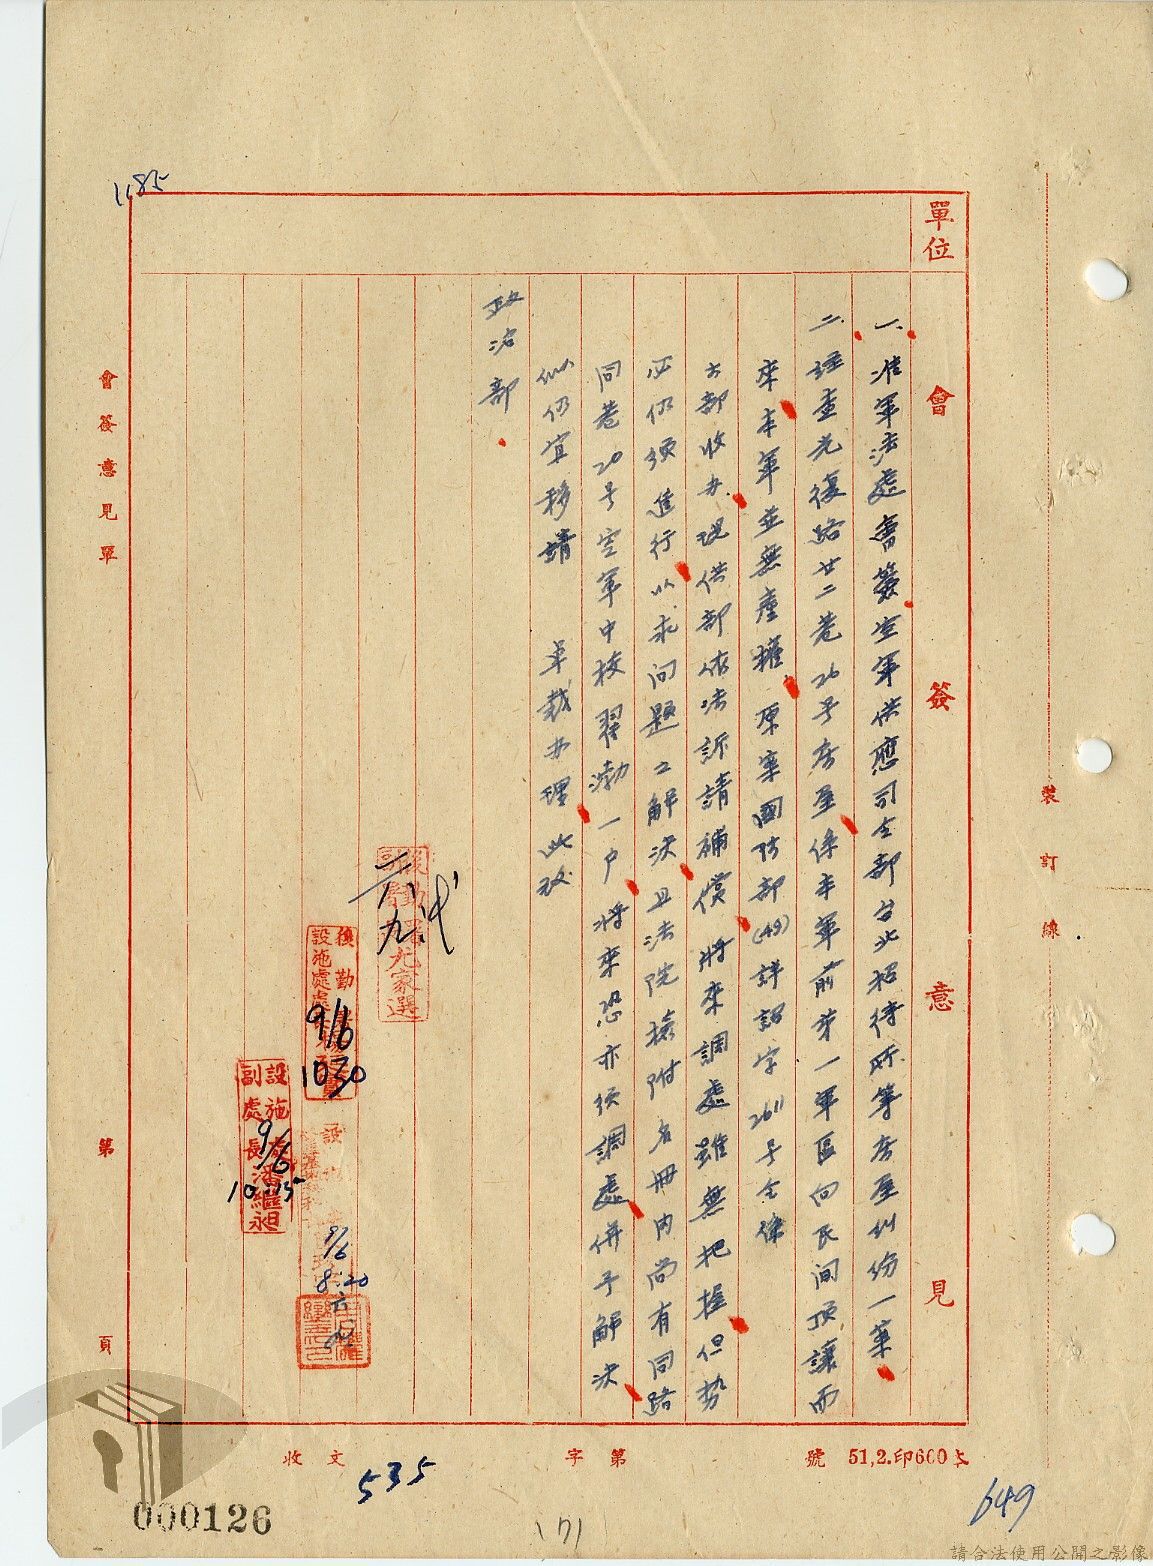 單位
會簽意見
一、准軍法處書簽空軍供應司令部台北招待所等房屋糾份一案
二、經查光復路廿二巷26号房屋係本軍前第一軍區向民間頂讓而
來本軍並無產權原案國防部(49)詳詔字2611号令係
由本部收办現供部依法訴請補償將來調處雖無把握但勢
必仍須進行以求问題之解决且法院檢附名冊内尚有同路
同巷20号空軍中校翟渤一户將來恐亦須調處併予解决
似仍宜移請 卓裁办理此致
政治部
裝訂線
會簽意見單
第
頁
設施處
9/6
8:20
後勤
設施處處
9/6
1030
設施處
副處長潘繼昶
9/6
10:15
尤家選
1185
收文
535
字第
號
51,2.印660本
649
000126
(7)
請合法使用公開之影像